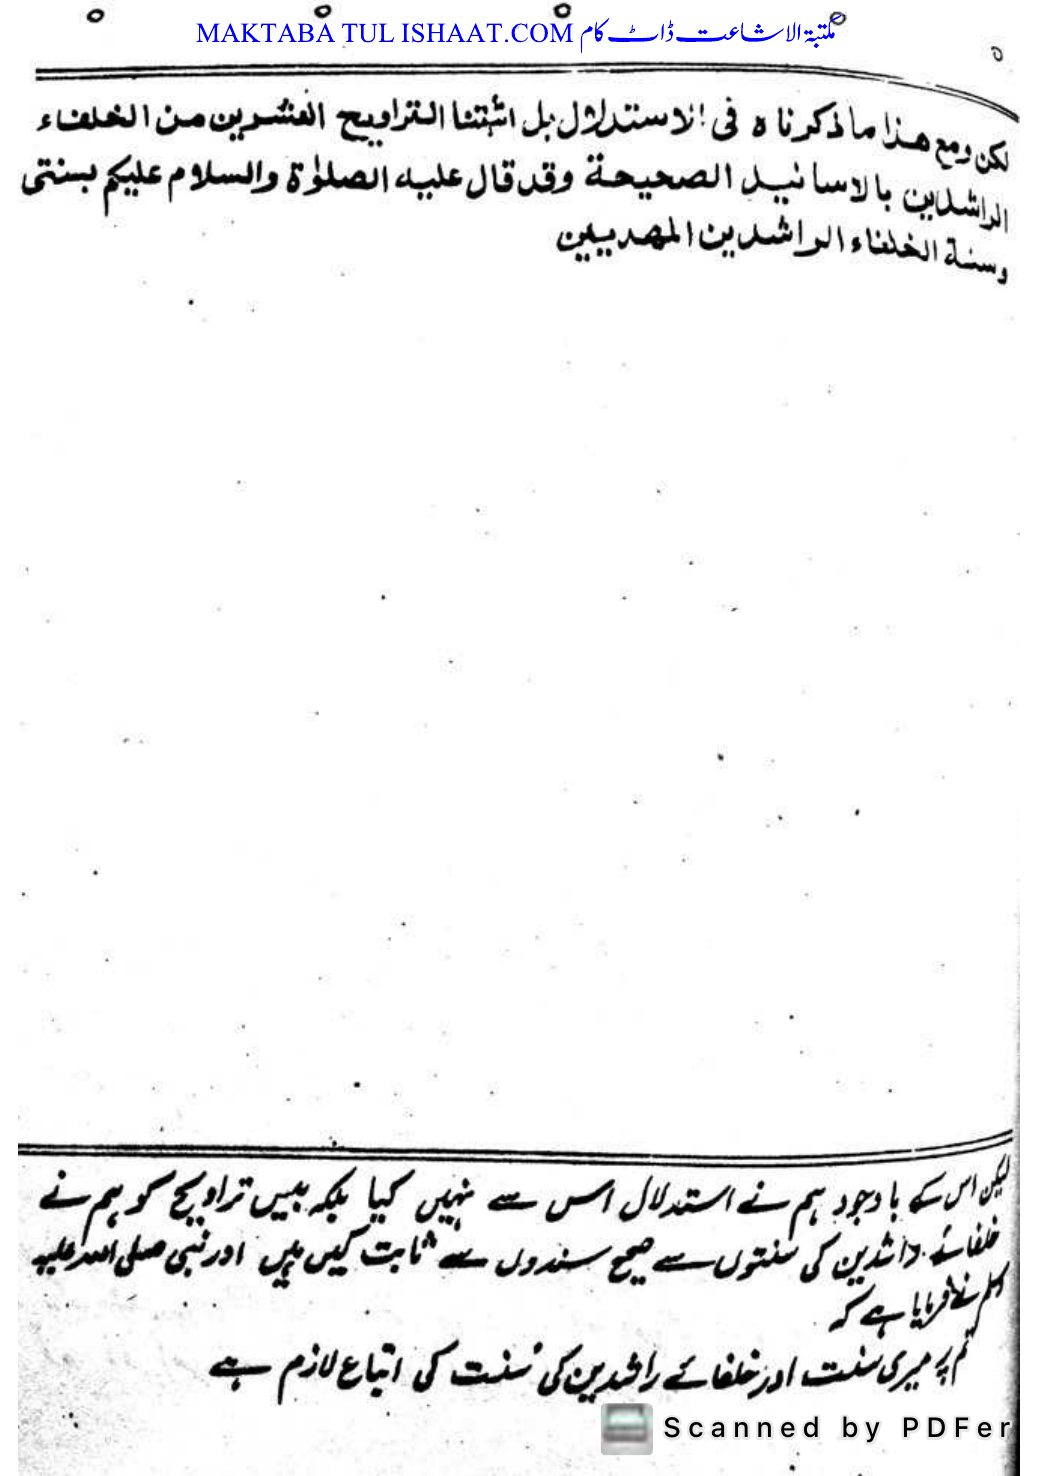 MAKTABA TUL ISHAAT.COM مكتبة الاشاعت ڈاٹ کام
۵
لكن ومع هذا ما ذكرناه فى الاستدلال بل اثبتنا التراويح العشرين من الخلفاء
الراشدين بالاسانيد الصحيحة وقد قال عليه الصلوٰة والسلام عليكم بسنتى
وسنة الخلفاء الراشدين المهديين
لیکن اس کے باوجود ہم نے استدلال اس سے نہیں کیا بلکہ بیس تراویح کو ہم نے
خلفائے راشدین کی سنتوں سے صحیح سندوں سے ثابت کیں ہیں اور نبی صلی اللہ علیہ
وسلم نے فرمایا ہے کہ
تم پر میری سنت اور خلفائے راشدین کی سُنت کی اتباع لازم ہے
Scanned by PDFer